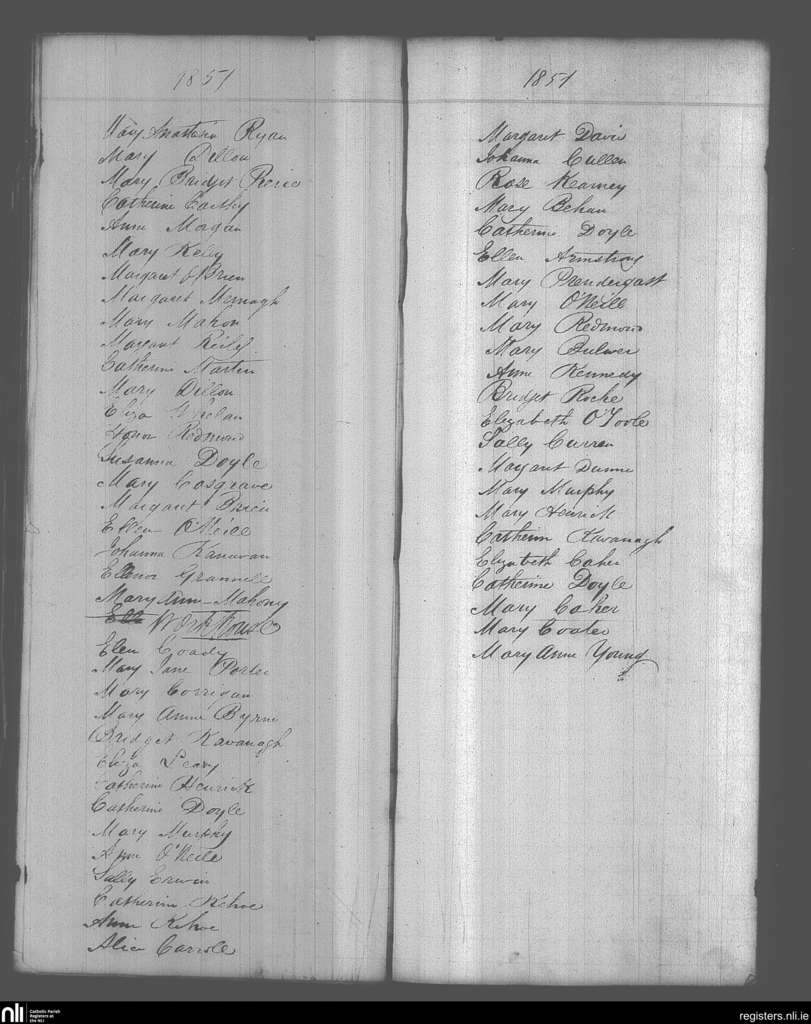 1851
Mary Anastasia Ryan
Mary Dillon
Mary Bridget
Catherine Carthy
Anne Morgan
Mary Kelly
Margaret O'Brien
Margaret
Mary Mahon
Margaret Reily
Catherine Martin
Mary Dillon
Eliza Whelan
Honor Redmond
Susanna Doyle
Mary Cosgrave
Margaret Brien
Ellen O'Neice
Johanna Kanavan
Ellenor Grannell
Mary Ann Mahony
Work house
Elen Coady
Mary Jane Porter
Mary Corrigan
Mary Anne Byrne
Bridget Kavanagh
Eliza Leary
Catherine Henrick
Catherine Doyle
Mary Murphy
Anne O'Neile
Sally Erwin
Catherine Kehoe
Anne Kehoe
Alice Carrole
1851
Margaret Davis
Johanna Cullen
Rose Kearney
Mary Behan
Catherine Doyle
Ellen Armstrong
Mary Prendergast
Mary O'Neill
Mary Redmond
Mary Bulwer
Anne Kennedy
Bridget Roche
Elizabeth O'Toole
Sally Curren
Margaret Dunne
Mary Murphy
Mary Henrick
Catherine Kavanagh
Elizabeth Caher
Catherine Doyle
Mary Caher
Mary Coates
Mary Anne Young
nli Catholic Parish Registers at the NLI
registers.nli.ie